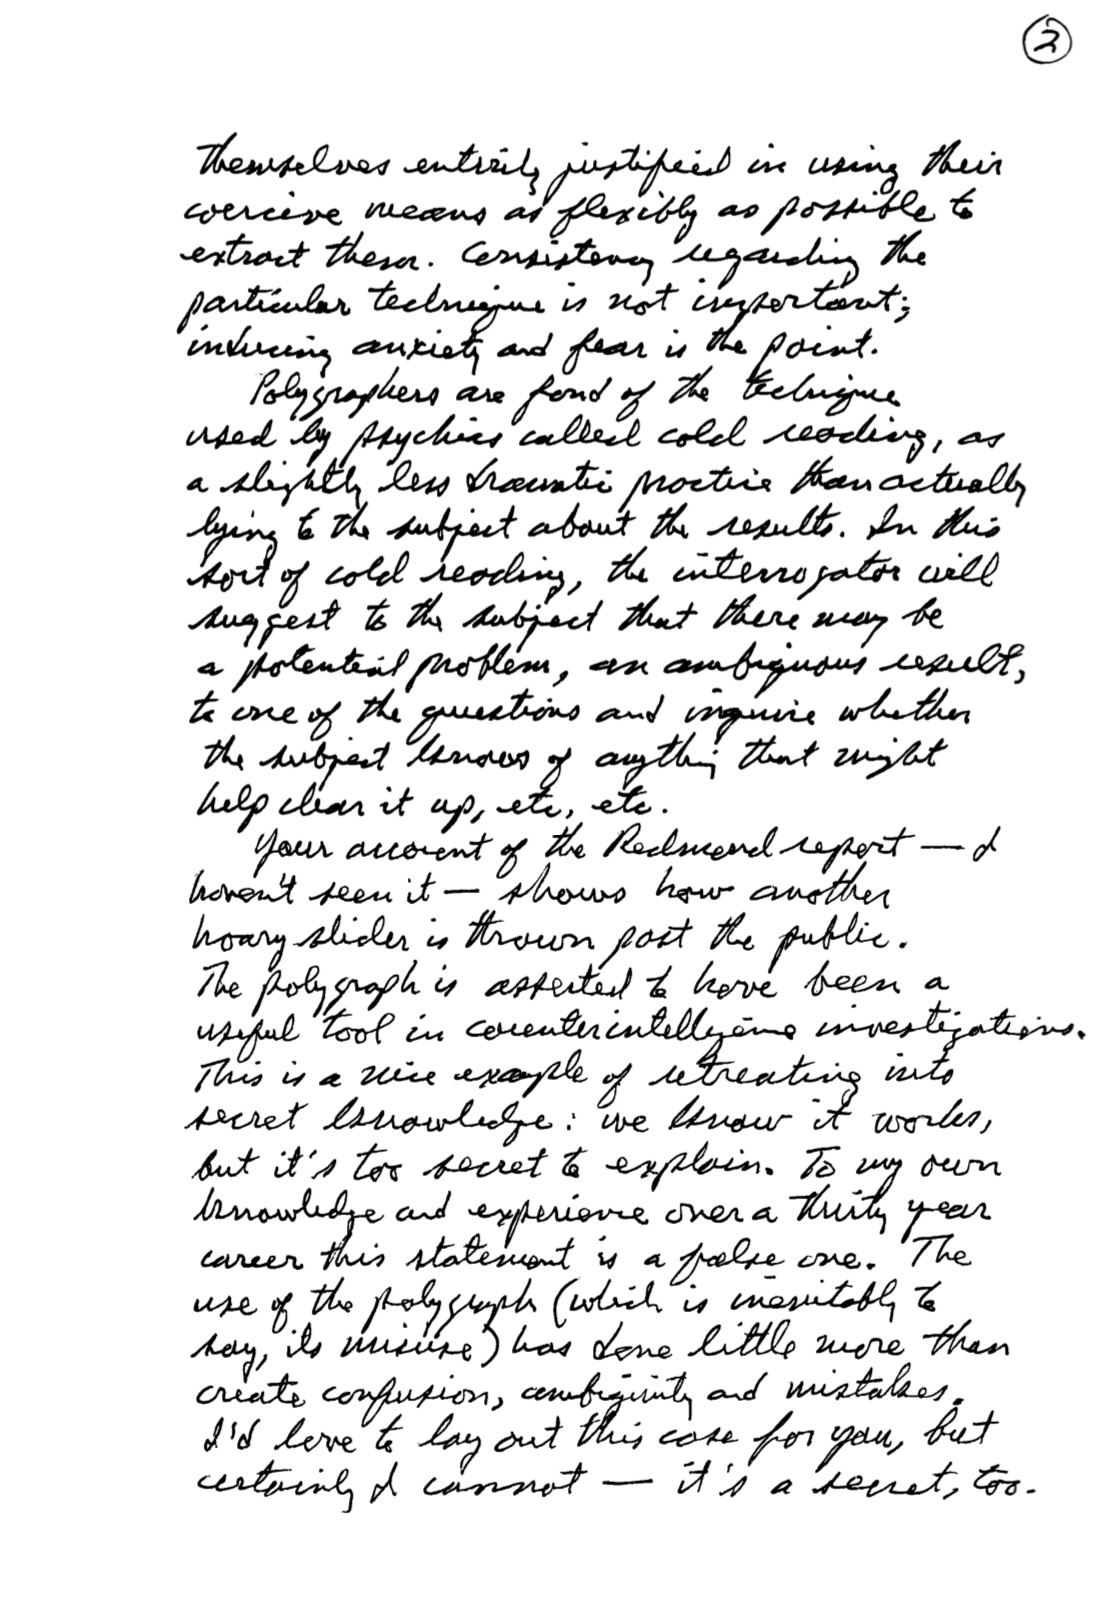 2
themselves entirely justified in using their
coercive means as flexibly as possible to
extract them. Consistency regarding the
particular technique is not important;
inducing anxiety and fear is the point.
Polygraphers are fond of the technique
used by psychics called cold reading, as
a slightly less dramatic practice than actually
lying to the subject about the results. In this
sort of cold reading, the interrogator will
suggest to the subject that there may be
a potential problem, an ambiguous result,
to one of the questions and inquire whether
the subject knows of anything that might
help clear it up, etc, etc.
Your account of the Redmond report — I
haven't seen it — shows how another
hoary slider is thrown past the public.
The polygraph is asserted to have been a
useful tool in counterintelligence investigations.
This is a nice example of retreating into
secret knowledge: we know it works,
but it's too secret to explain. To my own
knowledge and experience over a thirty year
career this statement is a false one. The
use of the polygraph (which is inevitably to
say, its misuse) has done little more than
create confusion, ambiguity and mistakes.
I'd love to lay out this case for you, but
certainly I cannot — it's a secret, too.